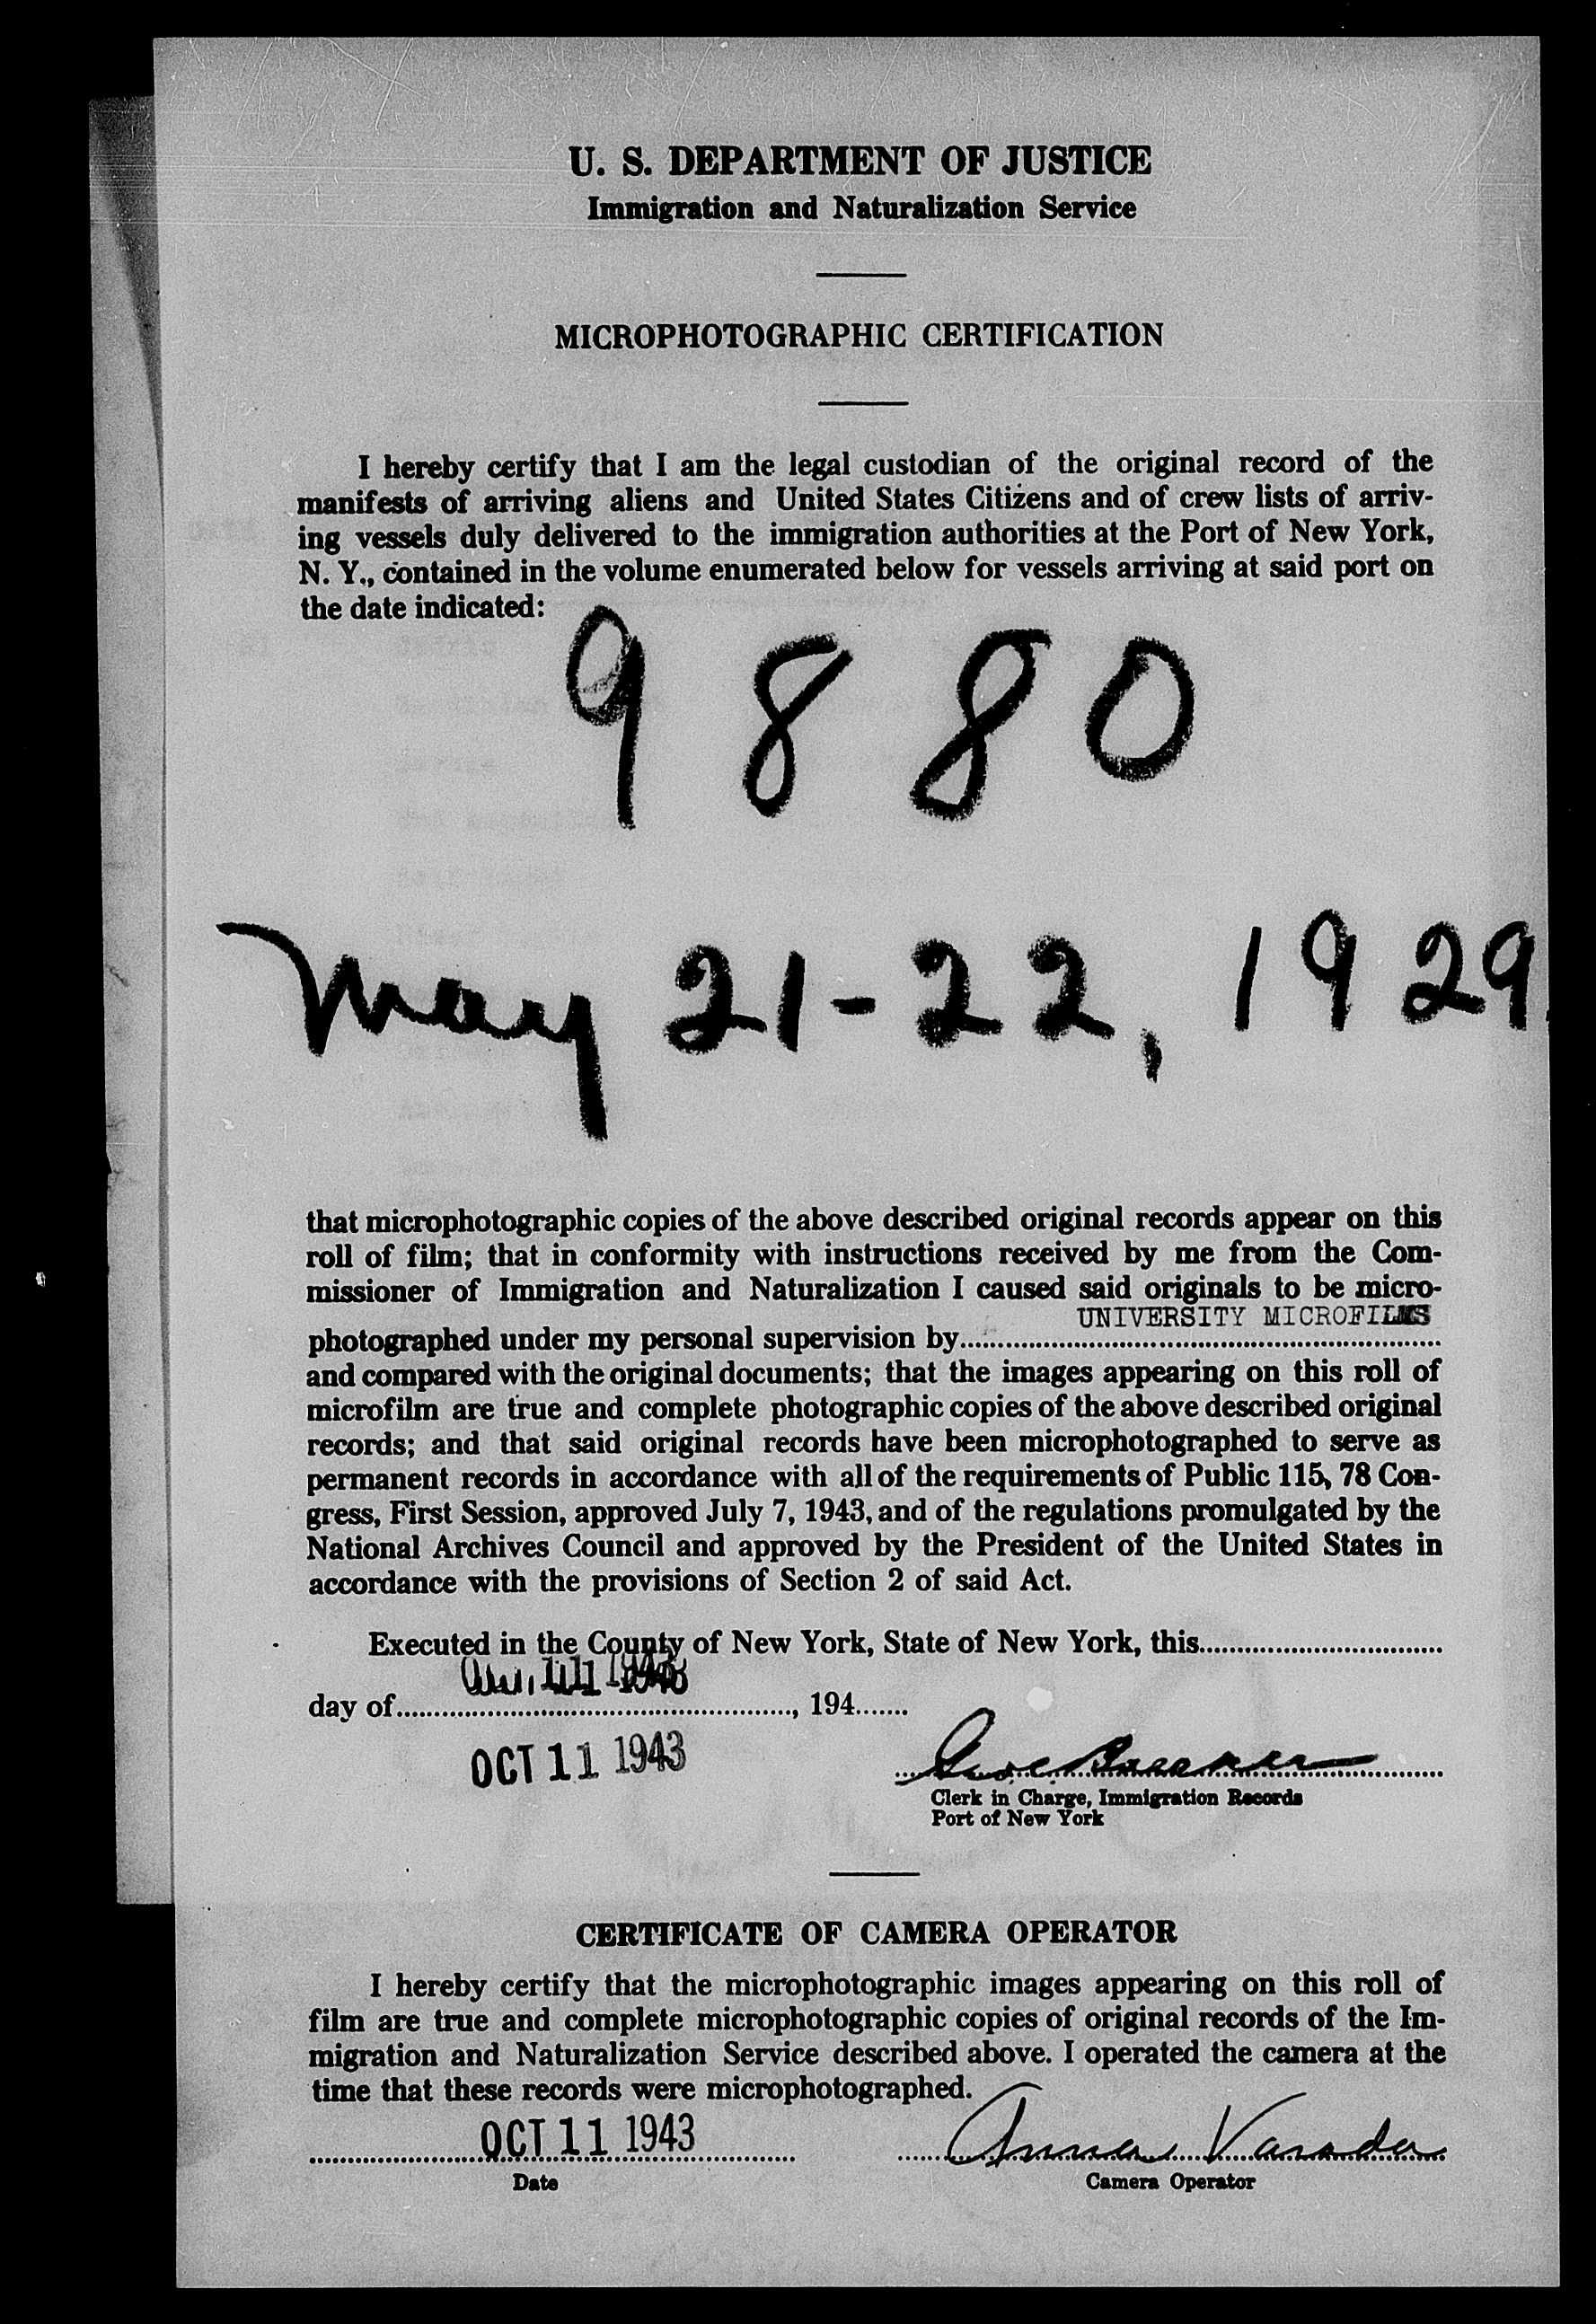 U. S. DEPARTMENT OF JUSTICE
Immigration and Naturalization Service
MICROPHOTOGRAPHIC CERTIFICATION
I hereby certify that I am the legal custodian of the original record of the
manifests of arriving aliens and United States Citizens and of crew lists of arriv-
ing vessels duly delivered to the immigration authorities at the Port of New York,
N. Y., contained in the volume enumerated below for vessels arriving at said port on
the date indicated:
9880
May 21-22, 1929
that microphotographic copies of the above described original records appear on this
roll of film; that in conformity with instructions received by me from the Com-
missioner of Immigration and Naturalization I caused said originals to be micro-
UNIVERSITY MICROFILMS
photographed under my personal supervision by
and compared with the original documents; that the images appearing on this roll of
microfilm are true and complete photographic copies of the above described original
records; and that said original records have been microphotographed to serve as
permanent records in accordance with all of the requirements of Public 115, 78 Con-
gress, First Session, approved July 7, 1943, and of the regulations promulgated by the
National Archives Council and approved by the President of the United States in
accordance with the provisions of Section 2 of said Act.
Executed in the County of New York, State of New York, this
day of , 194
OCT 11 1943
Clerk in Charge, Immigration Records
Port of New York
CERTIFICATE OF CAMERA OPERATOR
I hereby certify that the microphotographic images appearing on this roll of
film are true and complete microphotographic copies of original records of the Im-
migration and Naturalization Service described above. I operated the camera at the
time that these records were microphotographed.
OCT 11 1943 Anna
Date
Camera Operator